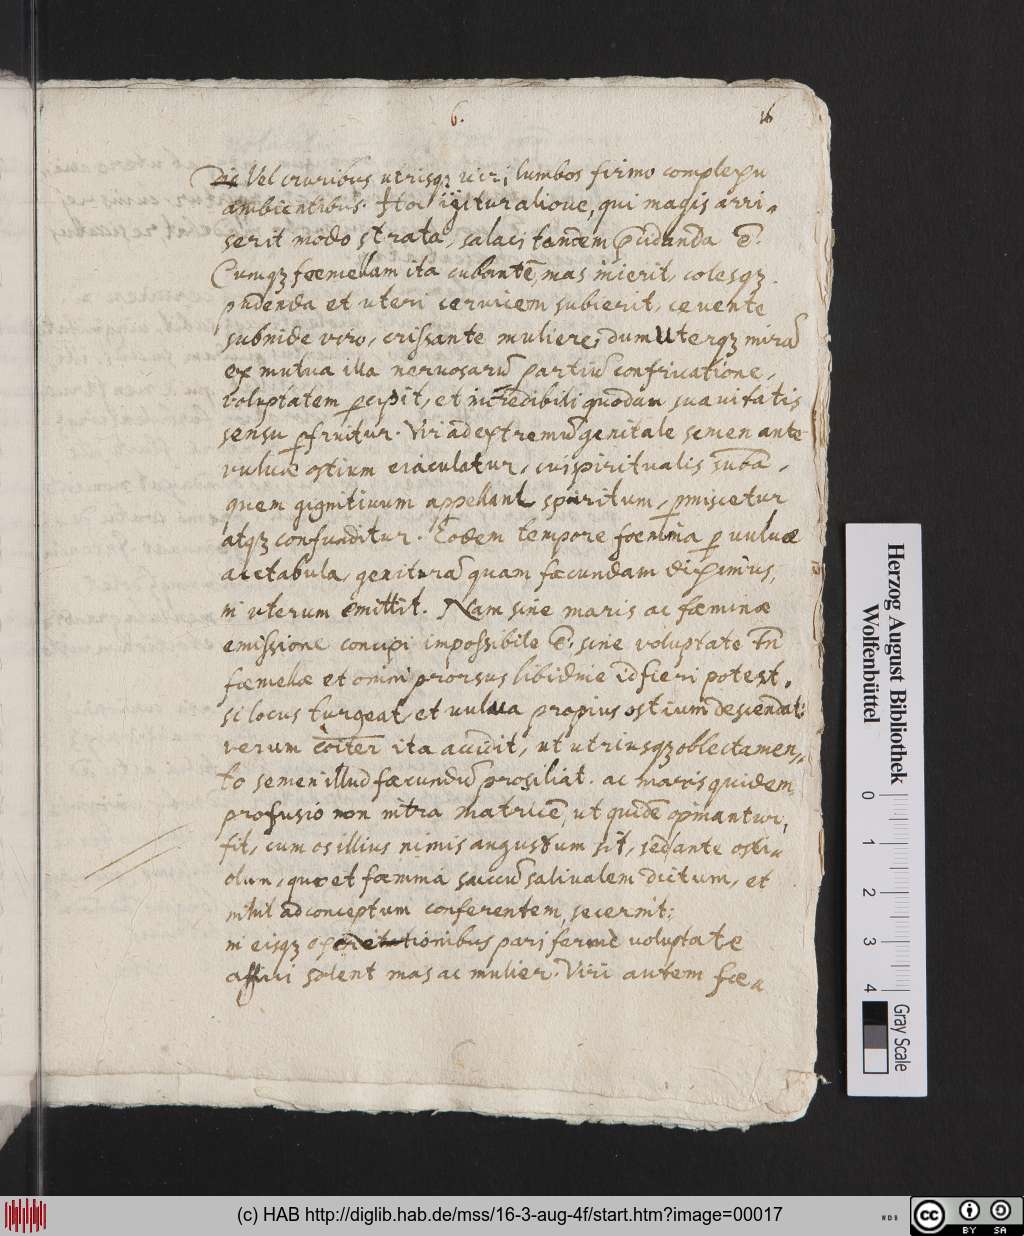 6. 16
Vel cruribus utrisqꝫ viri lumbos firmo complexu
ambientibus. Hoc igitur aliove, qui magis arri-
serit modo strata, salaci tandem p̄cidenda ē.
Cumqꝫ foemellam ita cubantē, mas inierit, colesqꝫ
pudenda et uteri cervicem subierit, cevente
subinde viro, crissante muliere, dum uterqꝫ mirā
ex mutua illa nervosarū partiū confricatione,
voluptatem percipit, et incredibili quodam suavitatis
sensu perfruitur. Viri ad extremū genitale semen ante
vulvae ostium eiaculatur, cui spiritualis suba,
quem gignitivum appellant spiritum, permiscetur
atqꝫ confunditur. Eodem tempore foemina per vulvae
acetabula, geniturā quam fœcundam diximus,
in uterum emittit. Nam sine maris ac fœminæ
emissione concipi impossibile ē. sine voluptate tn̄
fœmellæ et omni prorsus libidine id fieri potest,
si locus turgeat, et vulva propius ostium descendat:
verum coīter ita accidit, ut utriusqꝫ oblectamen-
to semen illud fœcundū prosiliat. ac maris quidem
profusio non intra matricē, ut quidē opinantur,
fit, cum os illius nimis angustum sit, sed ante osti-
olum, quo et fœmina succū salivalem dictum, et
nihil ad conceptum conferentem, secernit:
in eisqꝫ voluptate
affici solent mas ac mulier. Viri autem fœ-
Herzog August Bibliothek
Wolfenbüttel
0 1 2 3 4
Gray Scale
(c) HAB http://diglib.hab.de/mss/16-3-aug-4f/start.htm?image=00017
WDB
cc BY SA